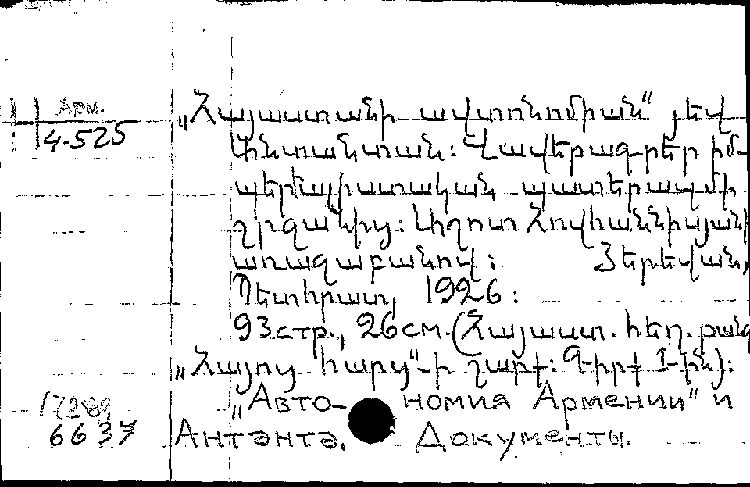 Арм.
4-525
„Հայաստանի ավտոնոմիան“ յեվ
Անտանտան: Վավերագրեր իմ-
պերիալիստական պատերազմի
շրջանից: Լիպոտ Հովհաննիսյանի
առաջաբանով: Յերեվան,
Պետհրատ, 1926:
93 стр., 26 см. (Հայաստ. հեղ. թանգ
„Հայոց հարց“-ի շարք: Գիրք 1-ին):
„Авто- номия Армении“ и
6637 Антанта. Документы.